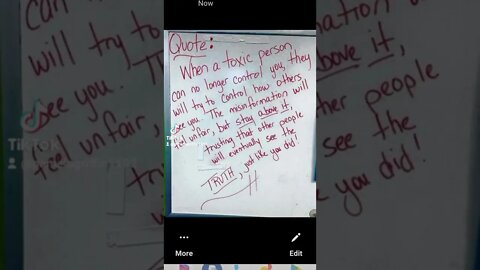 Now
Quote:
When a toxic person
can no longer control you, they
will try to control how others
see you. The misinformation will
feel unfair, but stay above it,
trusting that other people
will eventually see the
TRUTH, just like you did!
More
Edit
TikTok